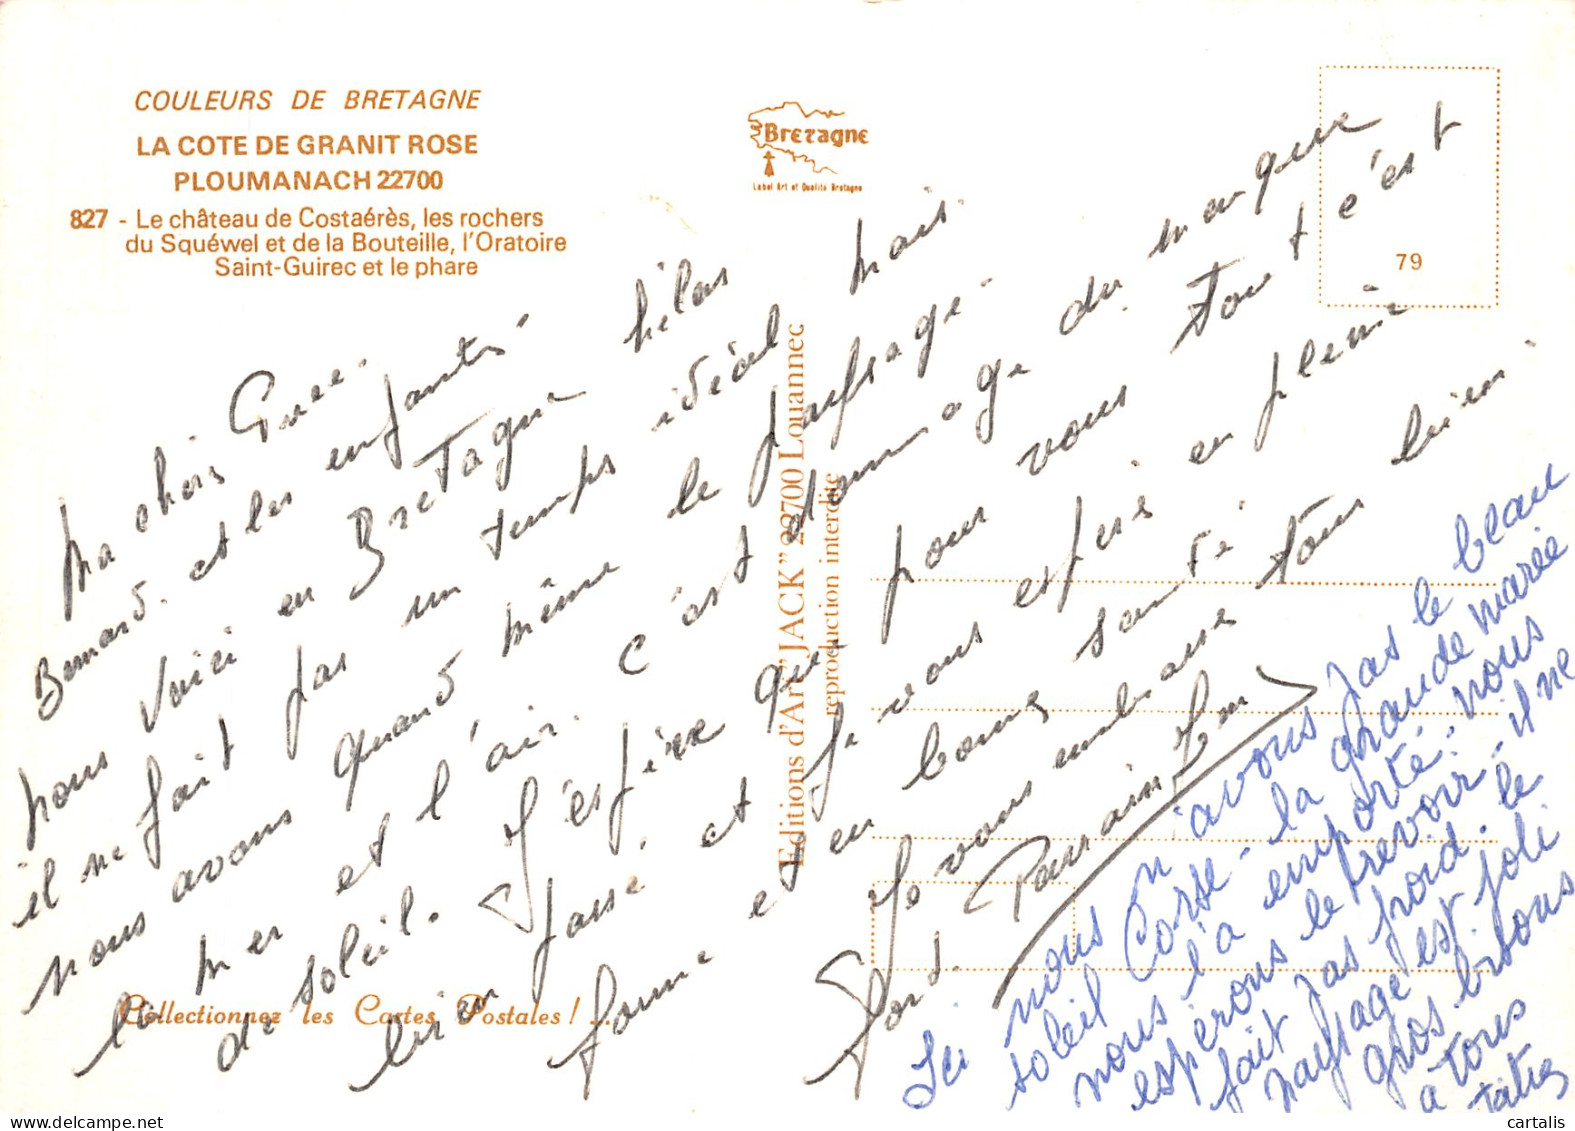 COULEURS DE BRETAGNE
LA COTE DE GRANIT ROSE
PLOUMANACH 22700
827 - Le château de Costaérès, les rochers
du Squéwel et de la Bouteille, l'Oratoire
Saint-Guirec et le phare
Bretagne
Label Art et Qualité Bretagne
79
Editions d'Art "JACK" 22700 Louannec
reproduction interdite
Collectionnez les Cartes Postales ! ...
Ma chère
Bernard. et les enfants
nous voici en Bretagne hélas
il ne fait pas un temps idéal mais
nous avons quand même le paysage.
la mer et l'air. c'est dommage du manque
de soleil. J'espère que pour vous tout c'est
bien passé. et je vous espère en pleine
forme et en bonne santé
Je vous embrasse tous bien.
fort. Parrain
Ici nous n'avons pas le beau
soleil Corse - la grande marée
nous l'a emporté. nous
espérons le revoir - il ne
fait pas froid. le
paysage est joli
gros bisous
à tous
cartalis